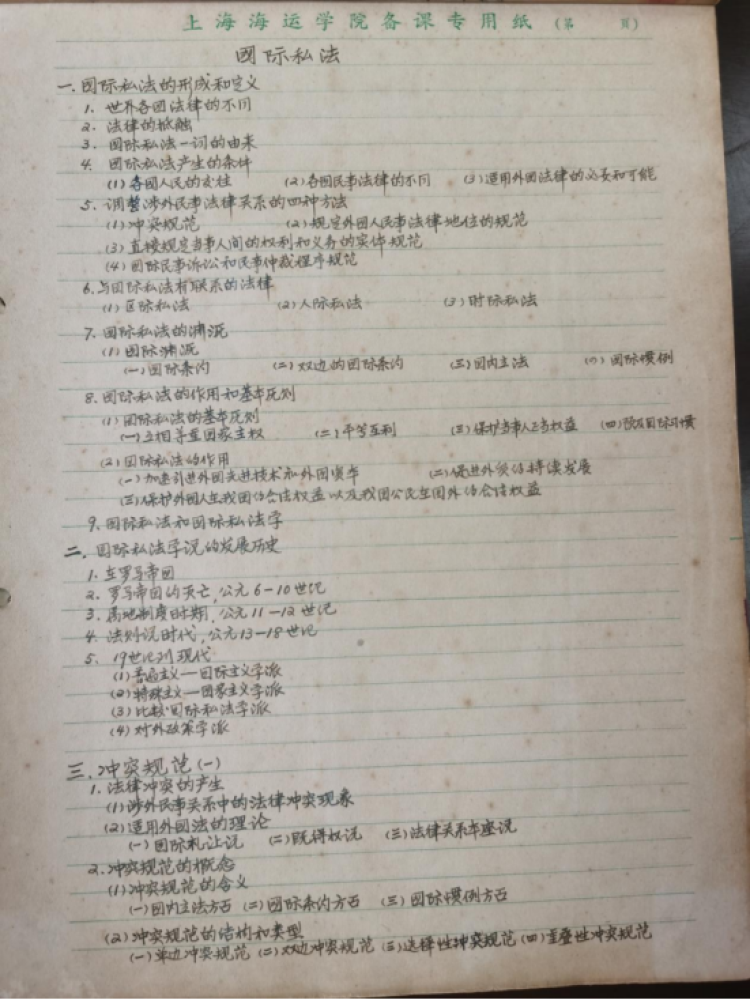 上海海运学院备课专用纸（第　　页）
国际私法
一. 国际私法的形成和定义
1. 世界各国法律的不同
2. 法律的抵触
3. 国际私法一词的由来
4. 国际私法产生的条件
(1) 各国人民的交往 (2) 各国民事法律的不同 (3) 适用外国法律的必要和可能
5. 调整涉外民事法律关系的四种方法
(1) 冲突规范 (2) 规定外国人民事法律地位的规范
(3) 直接规定当事人间的权利和义务的实体规范
(4) 国际民事诉讼和民事仲裁程序规范
6. 与国际私法有联系的法律
(1) 区际私法 (2) 人际私法 (3) 时际私法
7. 国际私法的渊源
(1) 国际渊源
(一) 国际条约 (二) 双边的国际条约 (三) 国内立法 (四) 国际惯例
8. 国际私法的作用和基本原则
(1) 国际私法的基本原则
(一) 互相尊重国家主权 (二) 平等互利 (三) 保护当事人正当权益 (四) 国际习惯
(2) 国际私法的作用
(一) 加速引进外国先进技术和外国资本 (二) 促进外贸的持续发展
(三) 保护外国人在我国的合法权益以及我国公民在国外的合法权益
9. 国际私法和国际私法学
二. 国际私法学说的发展历史
1. 在罗马帝国
2. 罗马帝国的灭亡, 公元6-10世纪
3. 属地制度时期, 公元11-12世纪
4. 法则说时代, 公元13-18世纪
5. 19世纪到现代
(1) 普遍主义—国际主义学派
(2) 特殊主义—国家主义学派
(3) 比较国际私法学派
(4) 对外政策学派
三. 冲突规范(一)
1. 法律冲突的产生
(1) 涉外民事关系中的法律冲突现象
(2) 适用外国法的理论
(一) 国际礼让说 (二) 既得权说 (三) 法律关系本座说
2. 冲突规范的概念
(1) 冲突规范的含义
(一) 国内立法方面 (二) 国际条约方面 (三) 国际惯例方面
(2) 冲突规范的结构和类型
(一) 单边冲突规范 (二) 双边冲突规范 (三) 选择性冲突规范 (四) 重叠性冲突规范